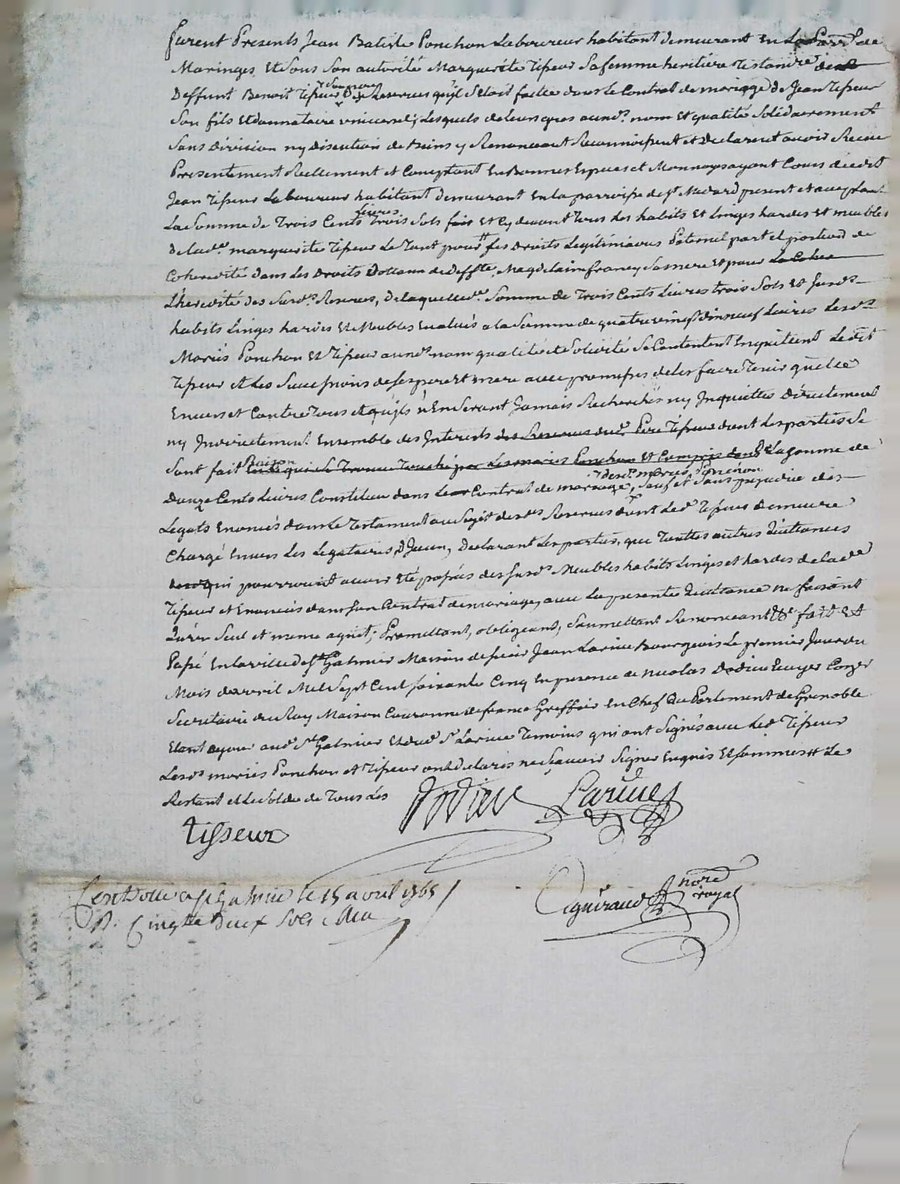 furent Presents Jean Batiste Ponchon Laboureur habitant demeurant en La Parr.e de
Maringes, Et Sous Son autorité Marguerite Tisseur Sa femme heritiere Testam.re
Deffunt Benoit Tisseur Son pere Des Reserves qu'il S'etoit faitte dans le Contrat de mariage de Jean Tisseur
Son fils Et donnataire universel, Lesquels de leurs gres aux d.s nom et qualité Solidairement
Sans division ny discution de biens y Renonceant Reconnoissent et declarent avoir Receu
Presentement Reellement et Comptant En Bonnes Especes et Monnoys ayant Cours dudit
Jean Tisseur Laboureur habitant demeurant En la parroisse de St. Medard present et acceptant
La Somme de Trois Cents Livres Trois Sols fais Et Cy devant Tous Les habits Et Linges hardes et meubles
De lad.e marguerite Tisseur Le Tout pour # Les Droits Legitimaires Paternel part et portion de
Coheredité dans Les Droits Dottaux de deff.te Magdelaine francy Sa mere Et pour
L'heredité des Susd.s Reserves, De laquelle Somme de Trois Cents Livres trois Sols Et Susd.s
habits Linges hardes Et Meubles Evalués a la Somme de quatre vingt dix neuf Livres Lesd.s
Mariés Ponchon Et Tisseur aux d.s nom qualité et Solidité Se Contentent Enquittent Ledit
Tisseur Et Les Successions de Ses pere Et mere avec promesses de les faire Tenir quitte
Envers et Contre Tous Et qu'ils n'En Seront Jamais Recherchés ny Inquiettés directement
ny Indirectement. Ensemble des Interets des Reserves dud. Pere Tisseur dont Les parties Se
Sont fait Raison Ponchon Et Compris dans La Somme de
Douze Cents Livres Constitué dans Leur Contrat de mariage, Sauf et Sans prejudice des
Legats Enoncés dans Le Testament au Sujet desd.s Reserves dont Led.t Tisseur demeure
Chargé Envers Les Legataires, D'Iceux, Declarant Les parties, que Touttes autres Quittances
qui pourroient avoir Eté passées des Susd.s Meubles habits Linges et hardes de lad.e
Tisseur et Enoncés dans Son Contrat de mariage, avec La presente Quittance ne faisant
Qu'un Seul et meme aquit; Promettant, obligeant, Soumettant Renonceant &c fait Et
Passé En la ville de St. Galmier Maison de Sieur Jean Larive Bourgeois Le premier Jour du
Mois d'avril Mil Sept Cent Soixante Cinq En presence de Nicolas Dodieu Ecuyer Con.ler
Secretaire du Roy Maison Couronne de france Greffier En Chef Du Parlement de Grenoble
Etant a jour aud.t St. Galmier Et dud.t Sr. Larive Temoins qui ont Signés avec Led.t Tisseur
Lesd.s mariés Ponchon et Tisseur ont declarés ne Scavoir Signer Enquis Et Sommés # Le
Restant et Le Solde de Tous Les
Dodieu Larive
tisseur
not.re royal
Controllé a St Galmier le 15 avril 1765
R. Cinquante Deux Sols